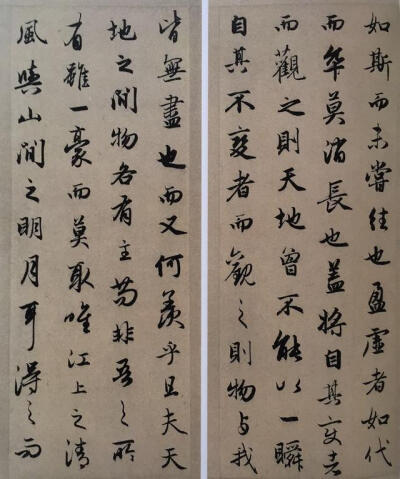 如斯而未嘗往也盈虛者如代
而卒莫消長也蓋將自其变者
而觀之則天地曾不能以一瞬
自其不變者而觀之則物与我
皆無盡也而又何羨乎且夫天
地之間物各有主苟非吾之所
有雖一豪而莫取唯江上之清
風與山間之明月耳得之而